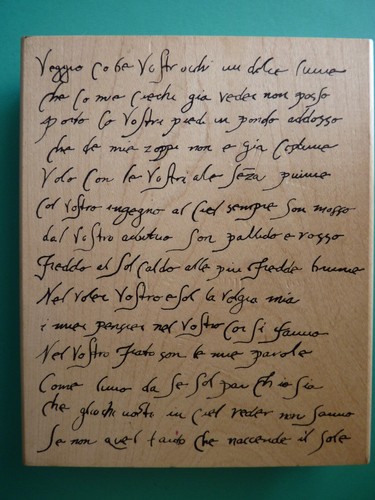 Veggio co be vostr ochi un dolce lume
che co mie ciechi gia veder non posso
porto co vostri piedi un pondo addosso
che de mie zoppi non e gia costume
volo con le vostr ale seza piume
col vostro ingegno al ciel sempre son mosso
dal vostro arbitrio son pallido e rosso
freddo al sol caldo alle piu fredde brume
Nel voler vostro e sol la voglia mia
i miei pensier nel vostro cor si fanno
Nel vostro fiato son le mie parole
Come luna da se sol par ch io sia
che gliochi nostri in ciel veder non sanno
se non quel tanto che naccende il sole